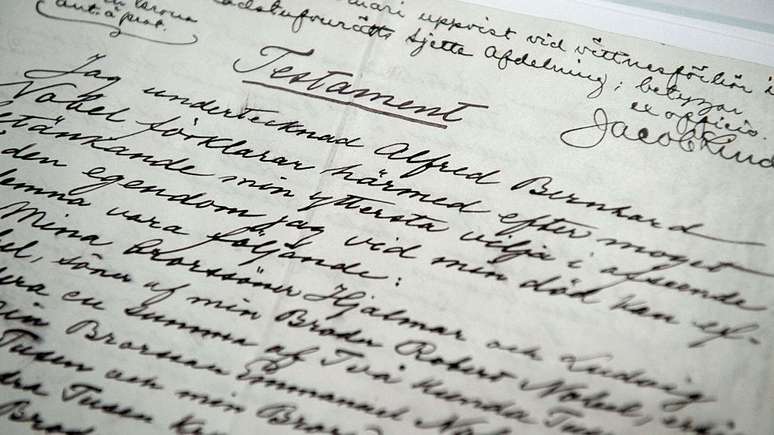 uppvist vid vittnesförhör i
dstufvurätts sjette Afdelning; betygar
ex officio.
Jacob Lind
Testament
Jag undertecknad Alfred Bernhard
Nobel förklarar härmed efter moget
etänkande min yttersta vilja i afseende
den egendom jag vid min död kan ef-
lemna vara följande:
Mina Brorssöner Hjalmar och Ludvig
el, söner af min Broder Robert Nobel, erhå
era en summa af Två Hundra Tusen
in Brorson Emmanuel No
Tusen och min Brors
dra Tusen Kr
Brod